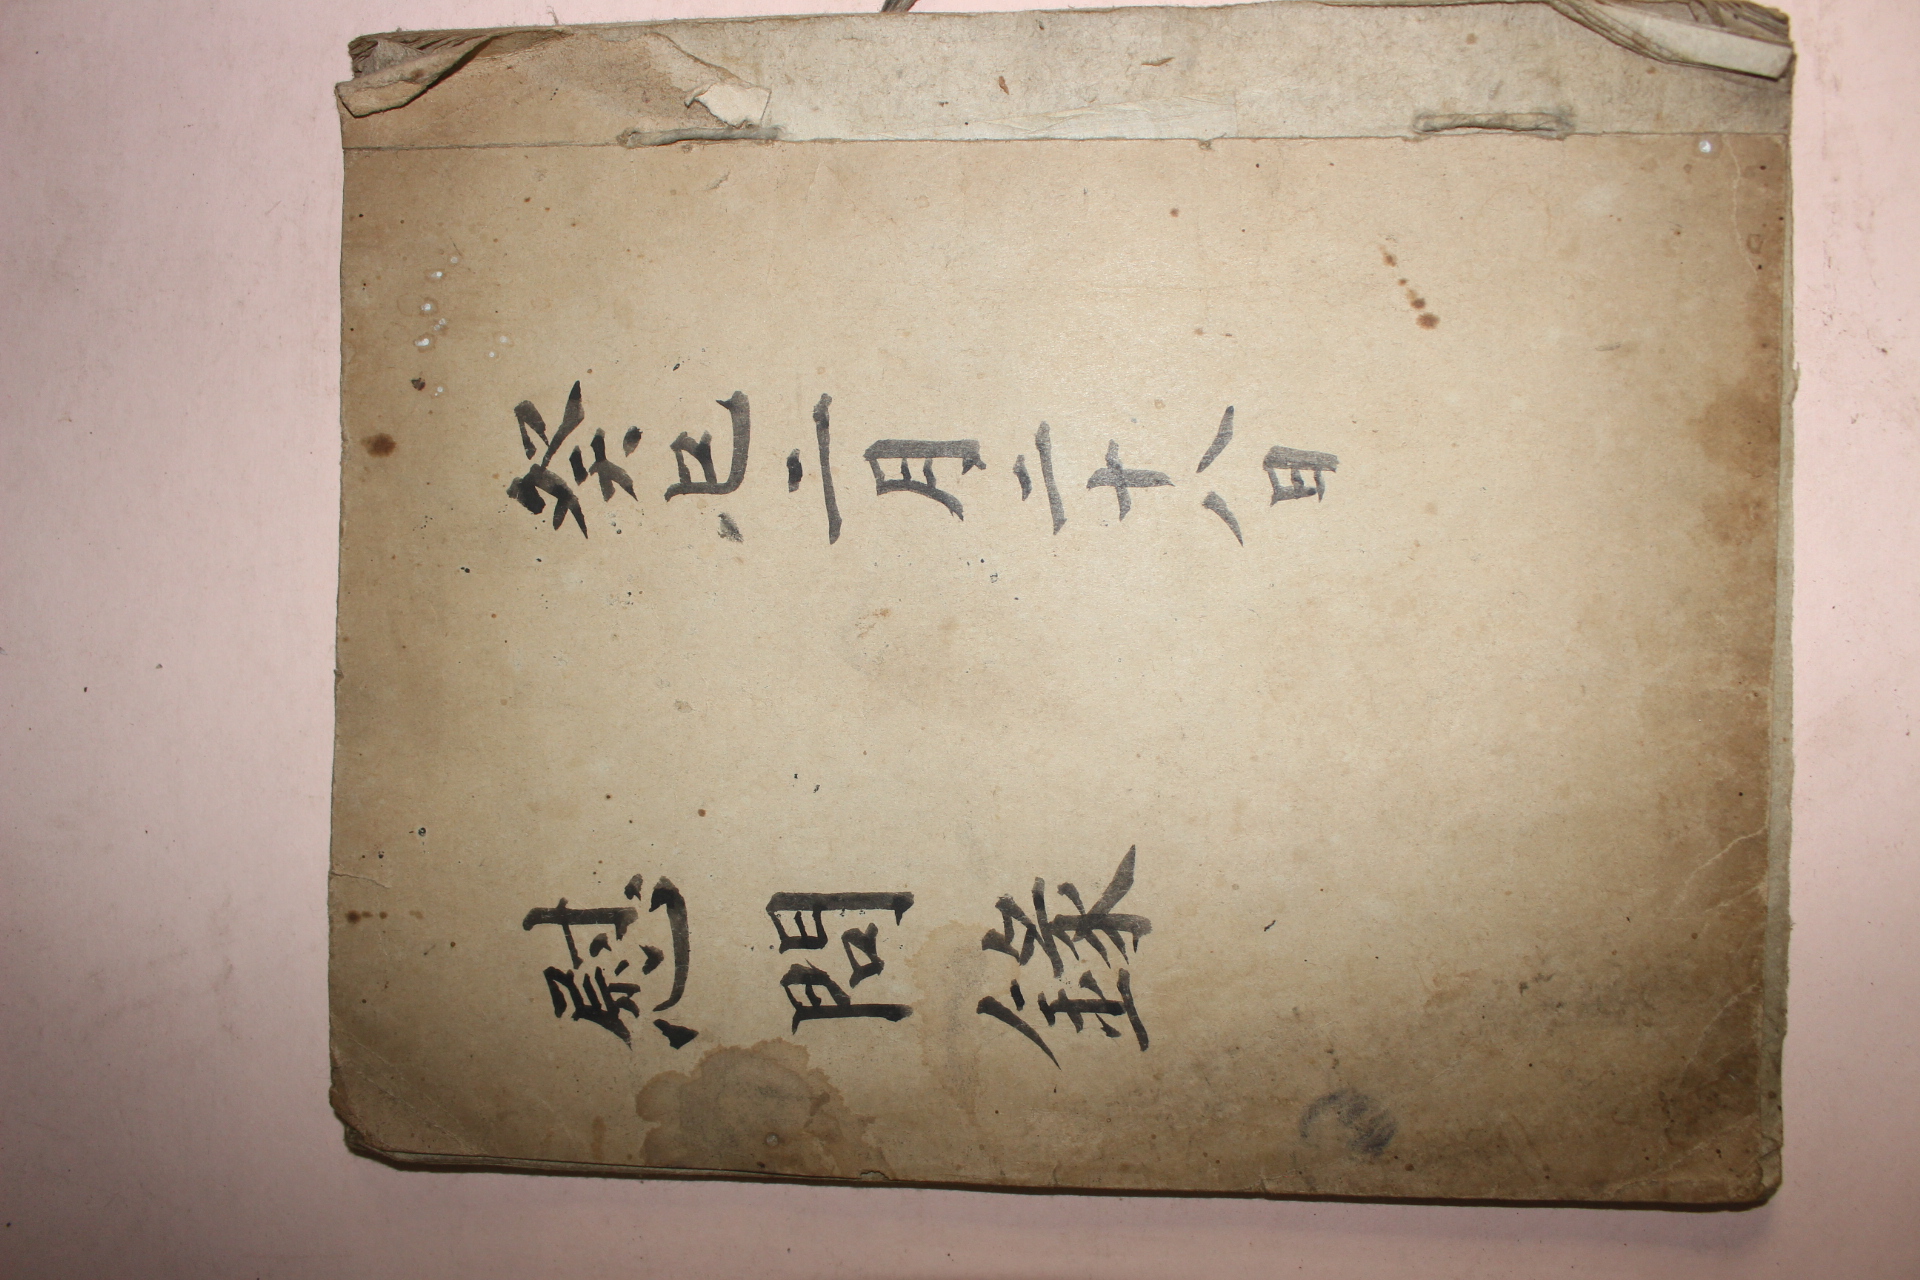 癸巳二月二十八日
慰問錄